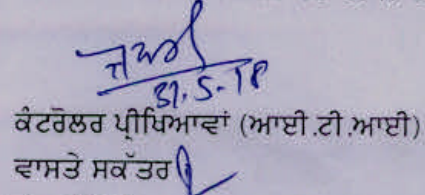 31.5.18
ਕੰਟਰੋਲਰ ਪ੍ਰੀਖਿਆਵਾਂ (ਆਈ.ਟੀ.ਆਈ)
ਵਾਸਤੇ ਸਕੱਤਰ